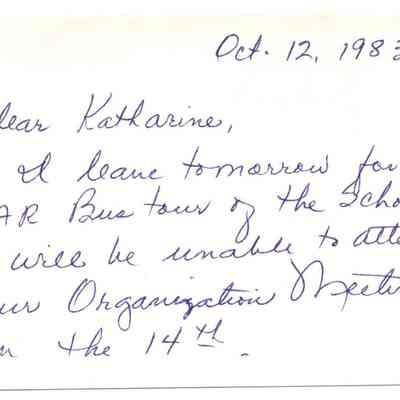 Oct. 12, 198
ear Katharine,
I leave tomorrow for
AR Bus tour of the Scho
will be unable to atte
ur Organization Meeti
n the 14th.